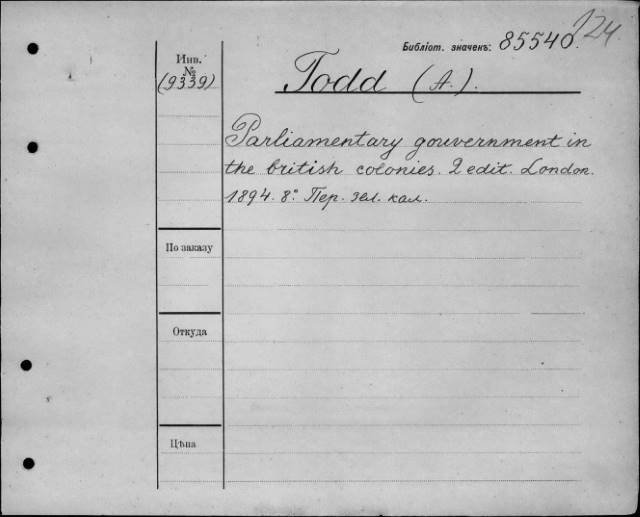 124.
Библіот. значекъ: 85540.
Инв.
№
(9339)
Todd (A.).
Parliamentary gouvernment in
the british colonies. 2 edit. London.
1894. 8º. Пер. зел. кал.
По заказу
Откуда
Цѣна